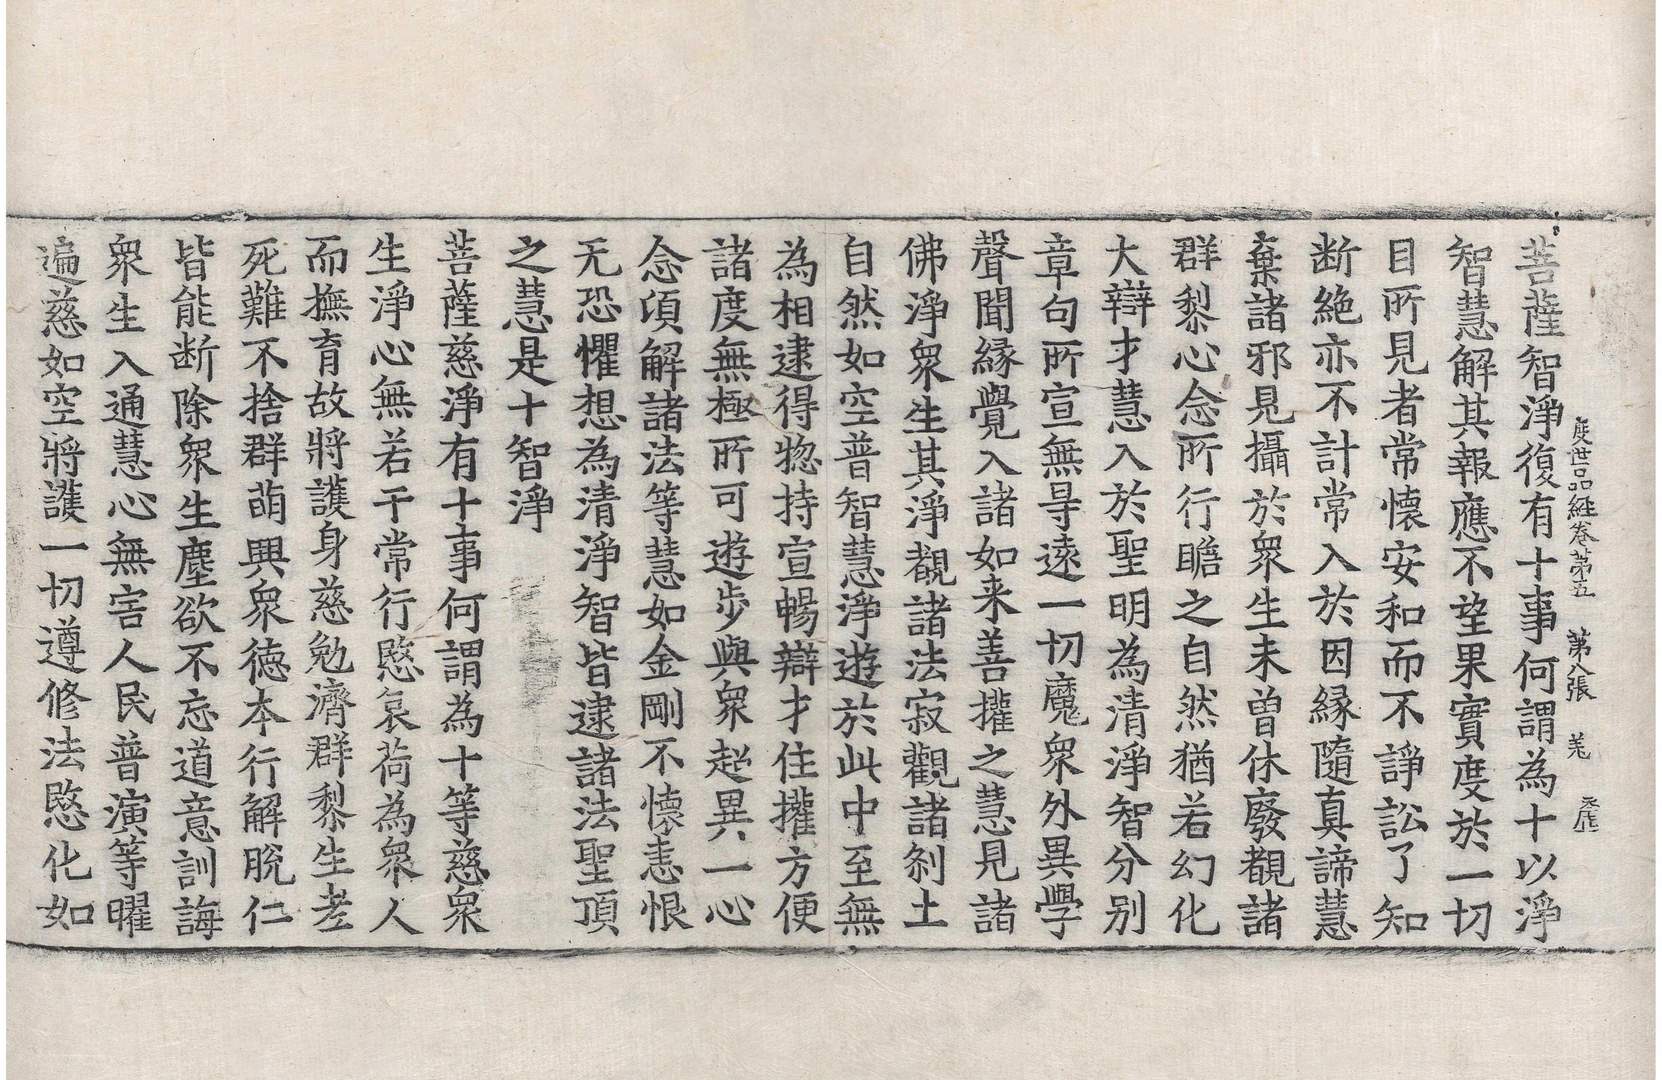 度世品經卷第五　第八張　羌
菩薩智淨復有十事何謂為十以淨
智慧解其報應不望果實度於一切
目所見者常懷安和而不諍訟了知
断絶亦不計常入於因縁隨真諦慧
棄諸邪見攝於衆生未曽休廢覩諸
群黎心念所行瞻之自然猶若幻化
大辯才慧入於聖明為清淨智分別
章句所宣無㝵遠一切魔衆外異學
聲聞縁覺入諸如来善攉之慧見諸
佛淨衆生其淨覩諸法寂觀諸刹土
自然如空普智慧淨遊於此中至無
為相逮得惣持宣暢辯才住攉方便
諸度無極所可遊步與衆超異一心
念頃解諸法等慧如金剛不懷恚恨
无恐懼想為清淨智皆逮諸法聖頂
之慧是十智淨
菩薩慈淨有十事何謂為十等慈衆
生淨心無若干常行愍哀荷為衆人
而撫育故將護身慈勉濟群黎生老
死難不捨群萌興衆徳本行解脫仁
皆能断除衆生塵欲不忘道意訓誨
衆生入通慧心無害人民普演等曜
遍慈如空將護一切遵修法愍化如